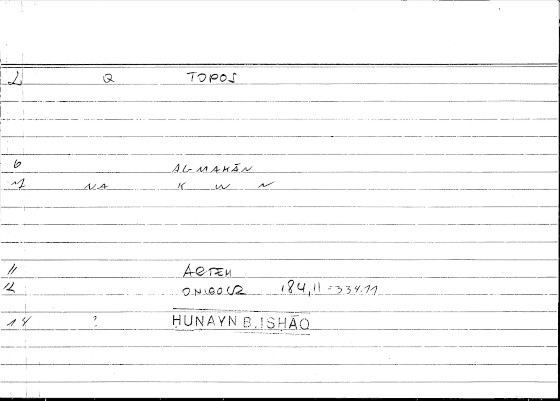 2 Q TOPOS
6 AL-MAKĀN
7 NA K W N
11
12 184,11 = 334.11
14 ? HUNAYN B. ISHĀQ